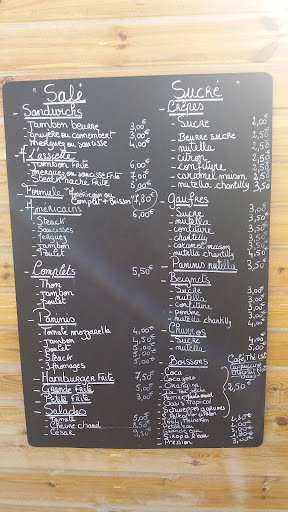 Salé
Sandwichs
- Jambon beurre 3,00€
- Gruyère ou camembert 3,00€
- Merguez ou saucisse 4,00€
L'assiette
- Jambon Frite 6,00€
- Merguez ou saucisse Frite 7,00€
- Steack haché Frite
Formule Américain ou Complet + Boisson 7,80€
Américains 6,00€
- Steack
- Saucisses
- Merguez
- Jambon
- Poulet
Complets 5,50€
- Thon
- Jambon
- poulet
Paninis
- Tomate mozzarella 4,00€
- Jambon 4,50€
- Poulet 5,00€
- Steack 5,00€
- 3 fromages
- Hamburger Frite 7,50€
- Grande Frite 5,00€
- Petite Frite 3,00€
Salades
- Tomate 5,00€
- Chèvre chaud 8,50€
- César 9,50€
Sucré
- Crêpes
- Sucre 2,00€
- Beurre sucre 2,50€
- nutella 2,50€
- citron 2,50€
- confiture 2,50€
- caramel maison 2,50€
- nutella chantilly 3,50€
- Gaufres
- Sucre
- nutella 3,50€
- confiture
- chantilly
- caramel maison
- nutella chantilly
- Paninis nutella 3,50€
- Beignets
- Sucre
- nutella
- Confiture
- pomme
- nutella chantilly
- Churros
- Sucre
- nutella 5,00€
- Boissons
Café, Thé
- Coca
- Coca zéro
- Orangina 2,50€
- Oasis Tropical
- Schweppes agrumes
- Perrier
- Sirop à l'eau
- Pression